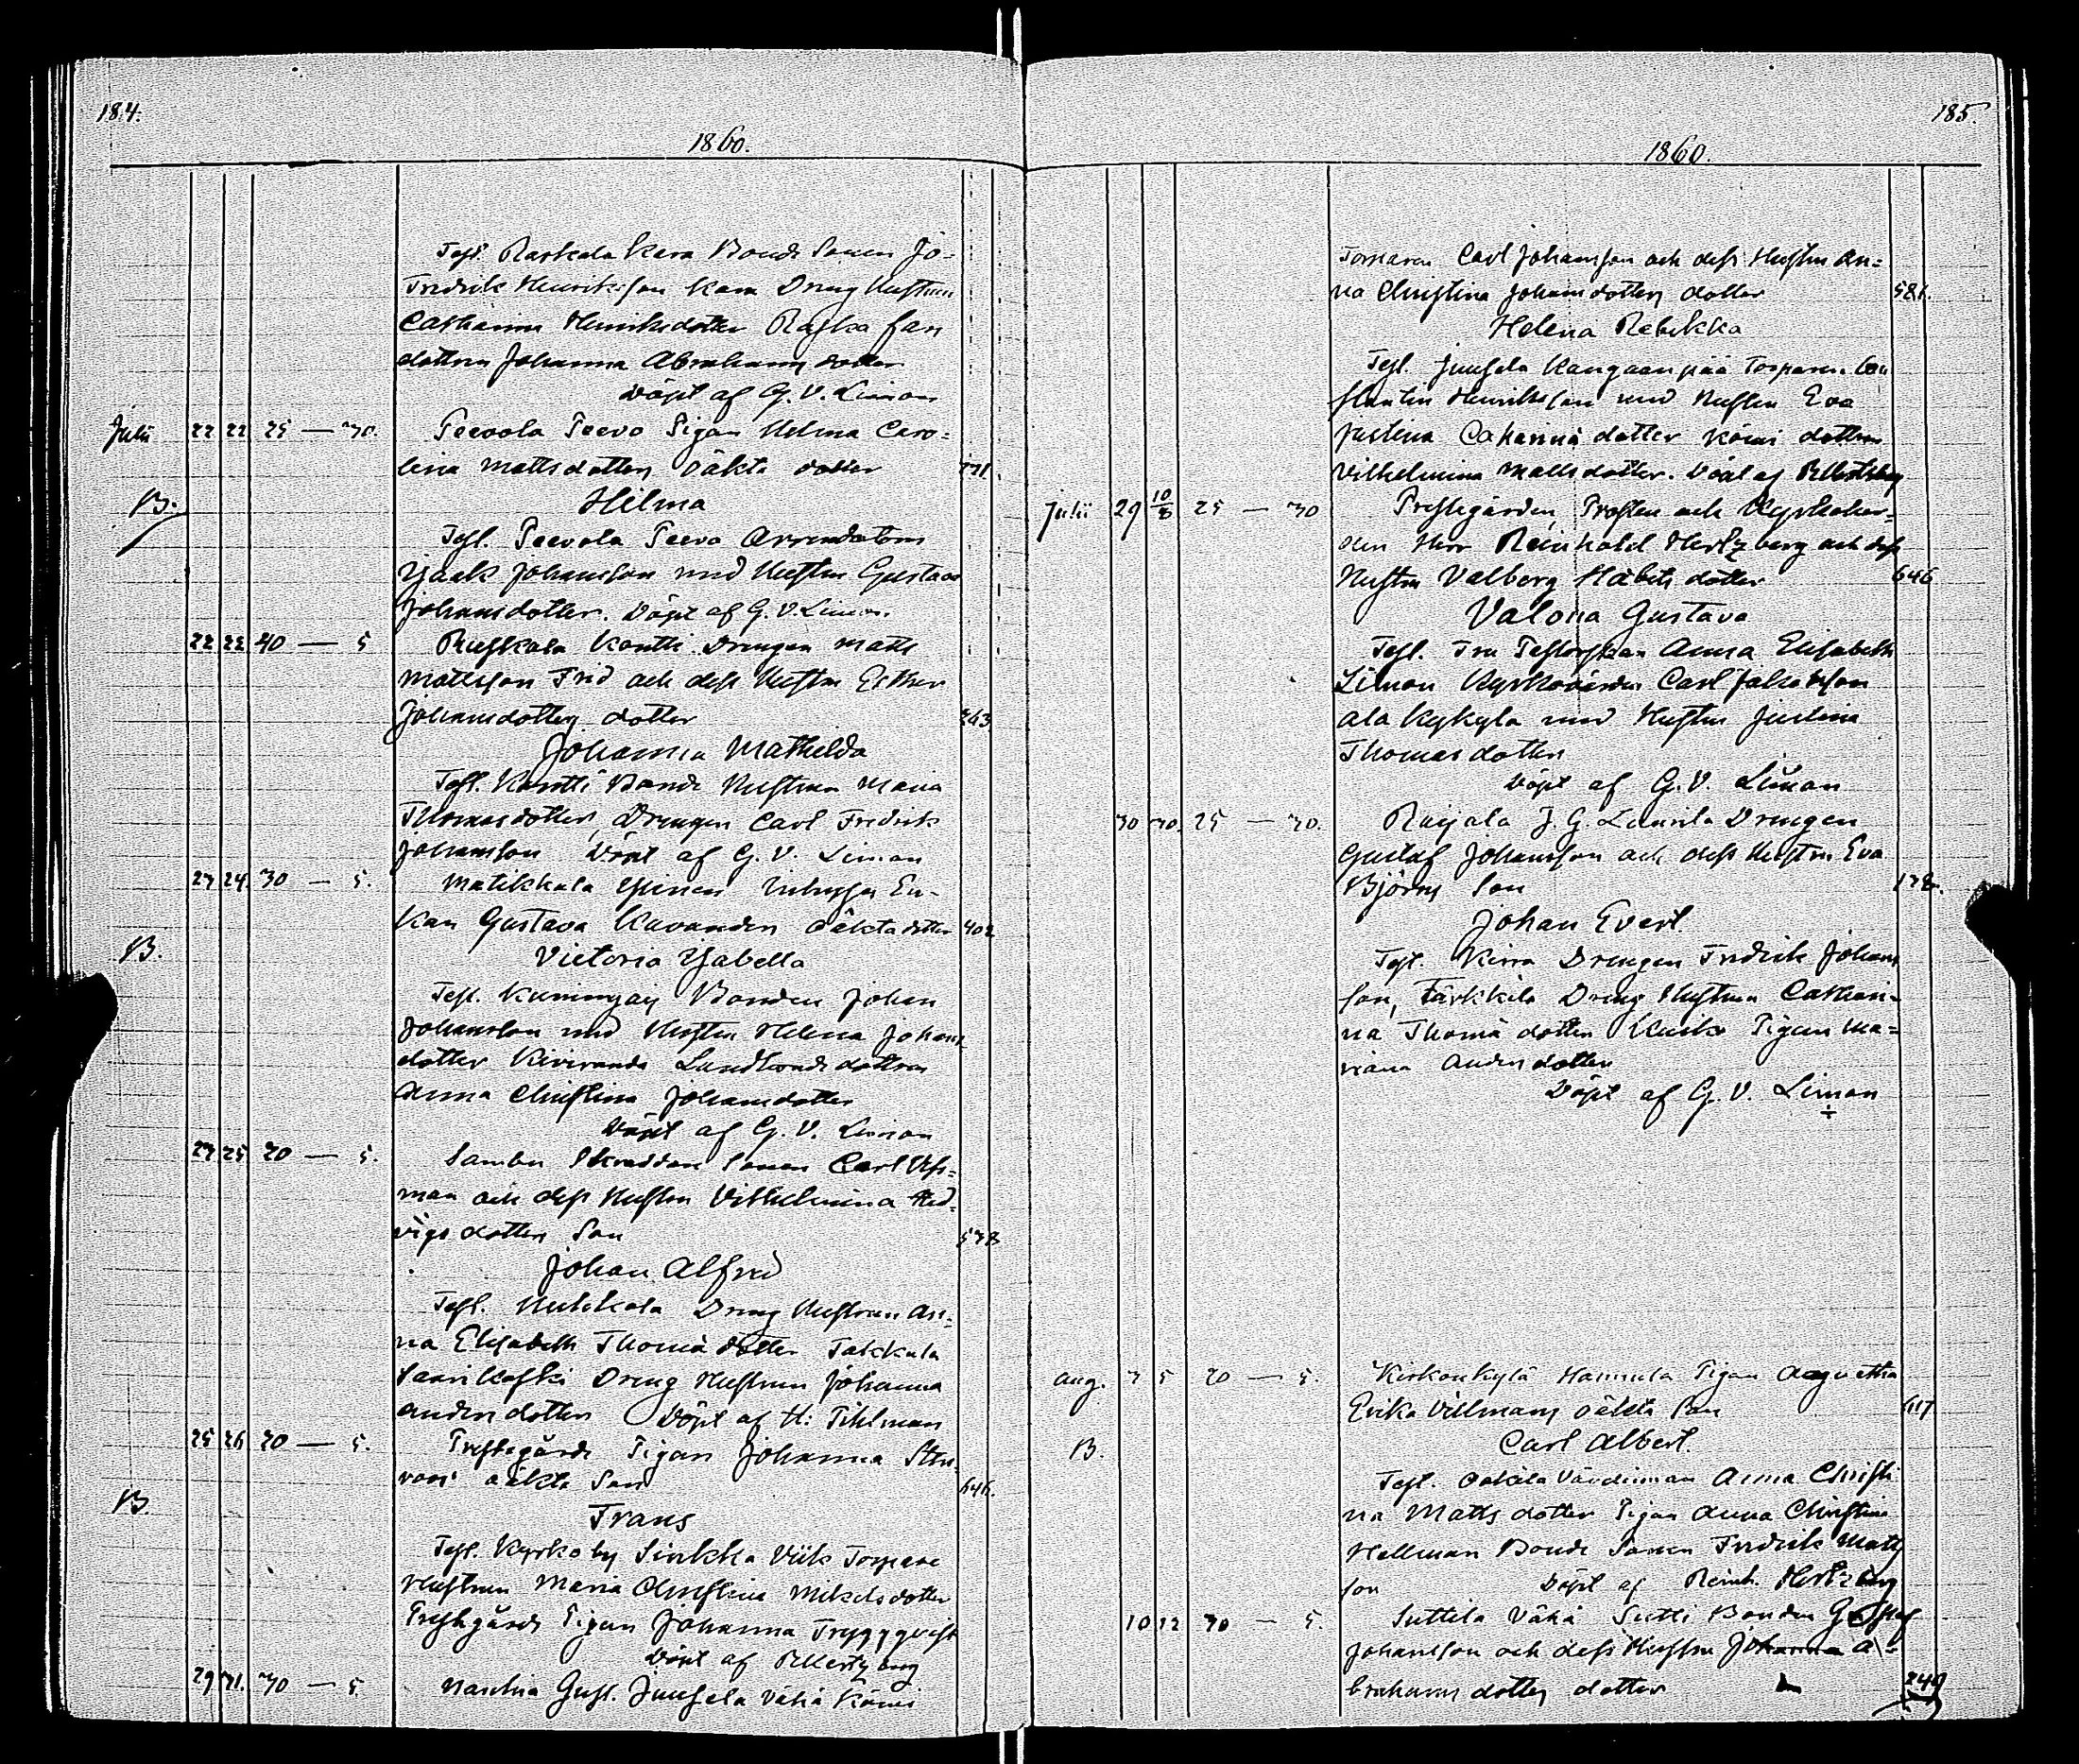 184.
1860.
Test. Raskala Kara Bonde Sonen Jo-
Fredrik Henriksson Kara Dreng Hustrun
Catharina Henriksdotter
dottren Johanna Abrahamsdotter
Döpt af G. V. Liman
Julii 22 22 25 — 30. Peevola Peevo Pigan Helena Caro-
lina Mattsdotters oäkta dotter 771
B. Hilma
Test. Peevola Peevo Arrendatorn
Isaak Johansson med Hustru Gustava
Johansdotter. Döpt af G. V. Liman.
22 22 40 — 5 Kontti Drengen Matts
Mattsson Frid och dess Hustru Esther
Johansdotters dotter 263
Johanna Mathilda
Test. Kontti Bonde Hustrun Maria
Thomasdotter, Drengen Carl Fredrik
Johansson Döpt af G. V. Liman
23 24 30 — 5. Matikkala En-
kan Gustava oäkta dotter 402
B. Victoria Isabella
Test. Bonden Johan
Johansson med Hustru Helena Johans
dotter Kiviranda Landbonde dottren
Anna Christina Johansdotter
Döpt af G. V. Liman
23 25 20 — 5. Sambu Skräddare Sonen Carl
man och dess Hustru Vilhelmina Hed-
vigsdotters Son 538
Johan Alfred
Test. Dreng Hustrun An-
na Elisabeth Thomædotter Takkula
Saarikoski Dreng Hustrun Johanna
Andersdotter Döpt af H: Tihlman
25 26 20 — 5. Prestegårds Pigan Johanna
oäkta Son 646.
B. Frans
Test. Kyrkoby Sinkka Viik Torpare
Hustrun Maria Christina Mikelsdotter
Prestgårds Pigan Johanna Tryggqvist
Döpt af R Hertzberg
29 31. 30 — 5. Gust. Juusela Vähä Kömi
185.
1860.
Torparen Carl Johansson och dess Hustru An-
na Christina Johansdotters dotter 581.
Helena Rebekka
Test. Juusela Kangaanpää Torparen Con
stantin Henriksson med Hustru Eva
Justina Catharinadotter Kömi dottren
Vilhelmina Mattsdotter. Döpt af R Hertzberg
Julii 29 10/8 25 — 30 Prestegården, Prosten och Kyrkoher-
den Herr Reinhold Hertzberg och dess
Hustru Valberg dotter 646
Valona Gustava
Test. Fru Pastorskan Anna Elisabeth
Liman Kyrkovärden Carl Jakobsson
Ala Kykyla med Hustru Justina
Thomasdotter
Döpt af G. V. Liman
30 30. 25 — 30. Raijala J. G. Laurila Drengen
Gustaf Johansson och dess Hustru Eva
Björns Son 138.
Johan Evert.
Test. Kirra Drengen Fredrik Johans
son, Färkkilä Dreng Hustrun Cathari-
na Thomædotter Pigan Ma-
riana Andersdotter
Döpt af G. V. Liman
Aug. 3 5 20 — 5. Kirkonkylä Hannula Pigan Agnetha
Erika Villmans oäkta Son 617
B. Carl Albert.
Test. Anna Christi
na Mattsdotter Pigan Anna Christina
Hellman Bonde Sonen Fredrik Matts
son Döpt af Reinh. Hertzberg
10 12 30 — 5. Suttila Vähä Sutti Bonden Gustaf
Johansson och dess Hustru Johanna A-
brahamsdotters dotter 249